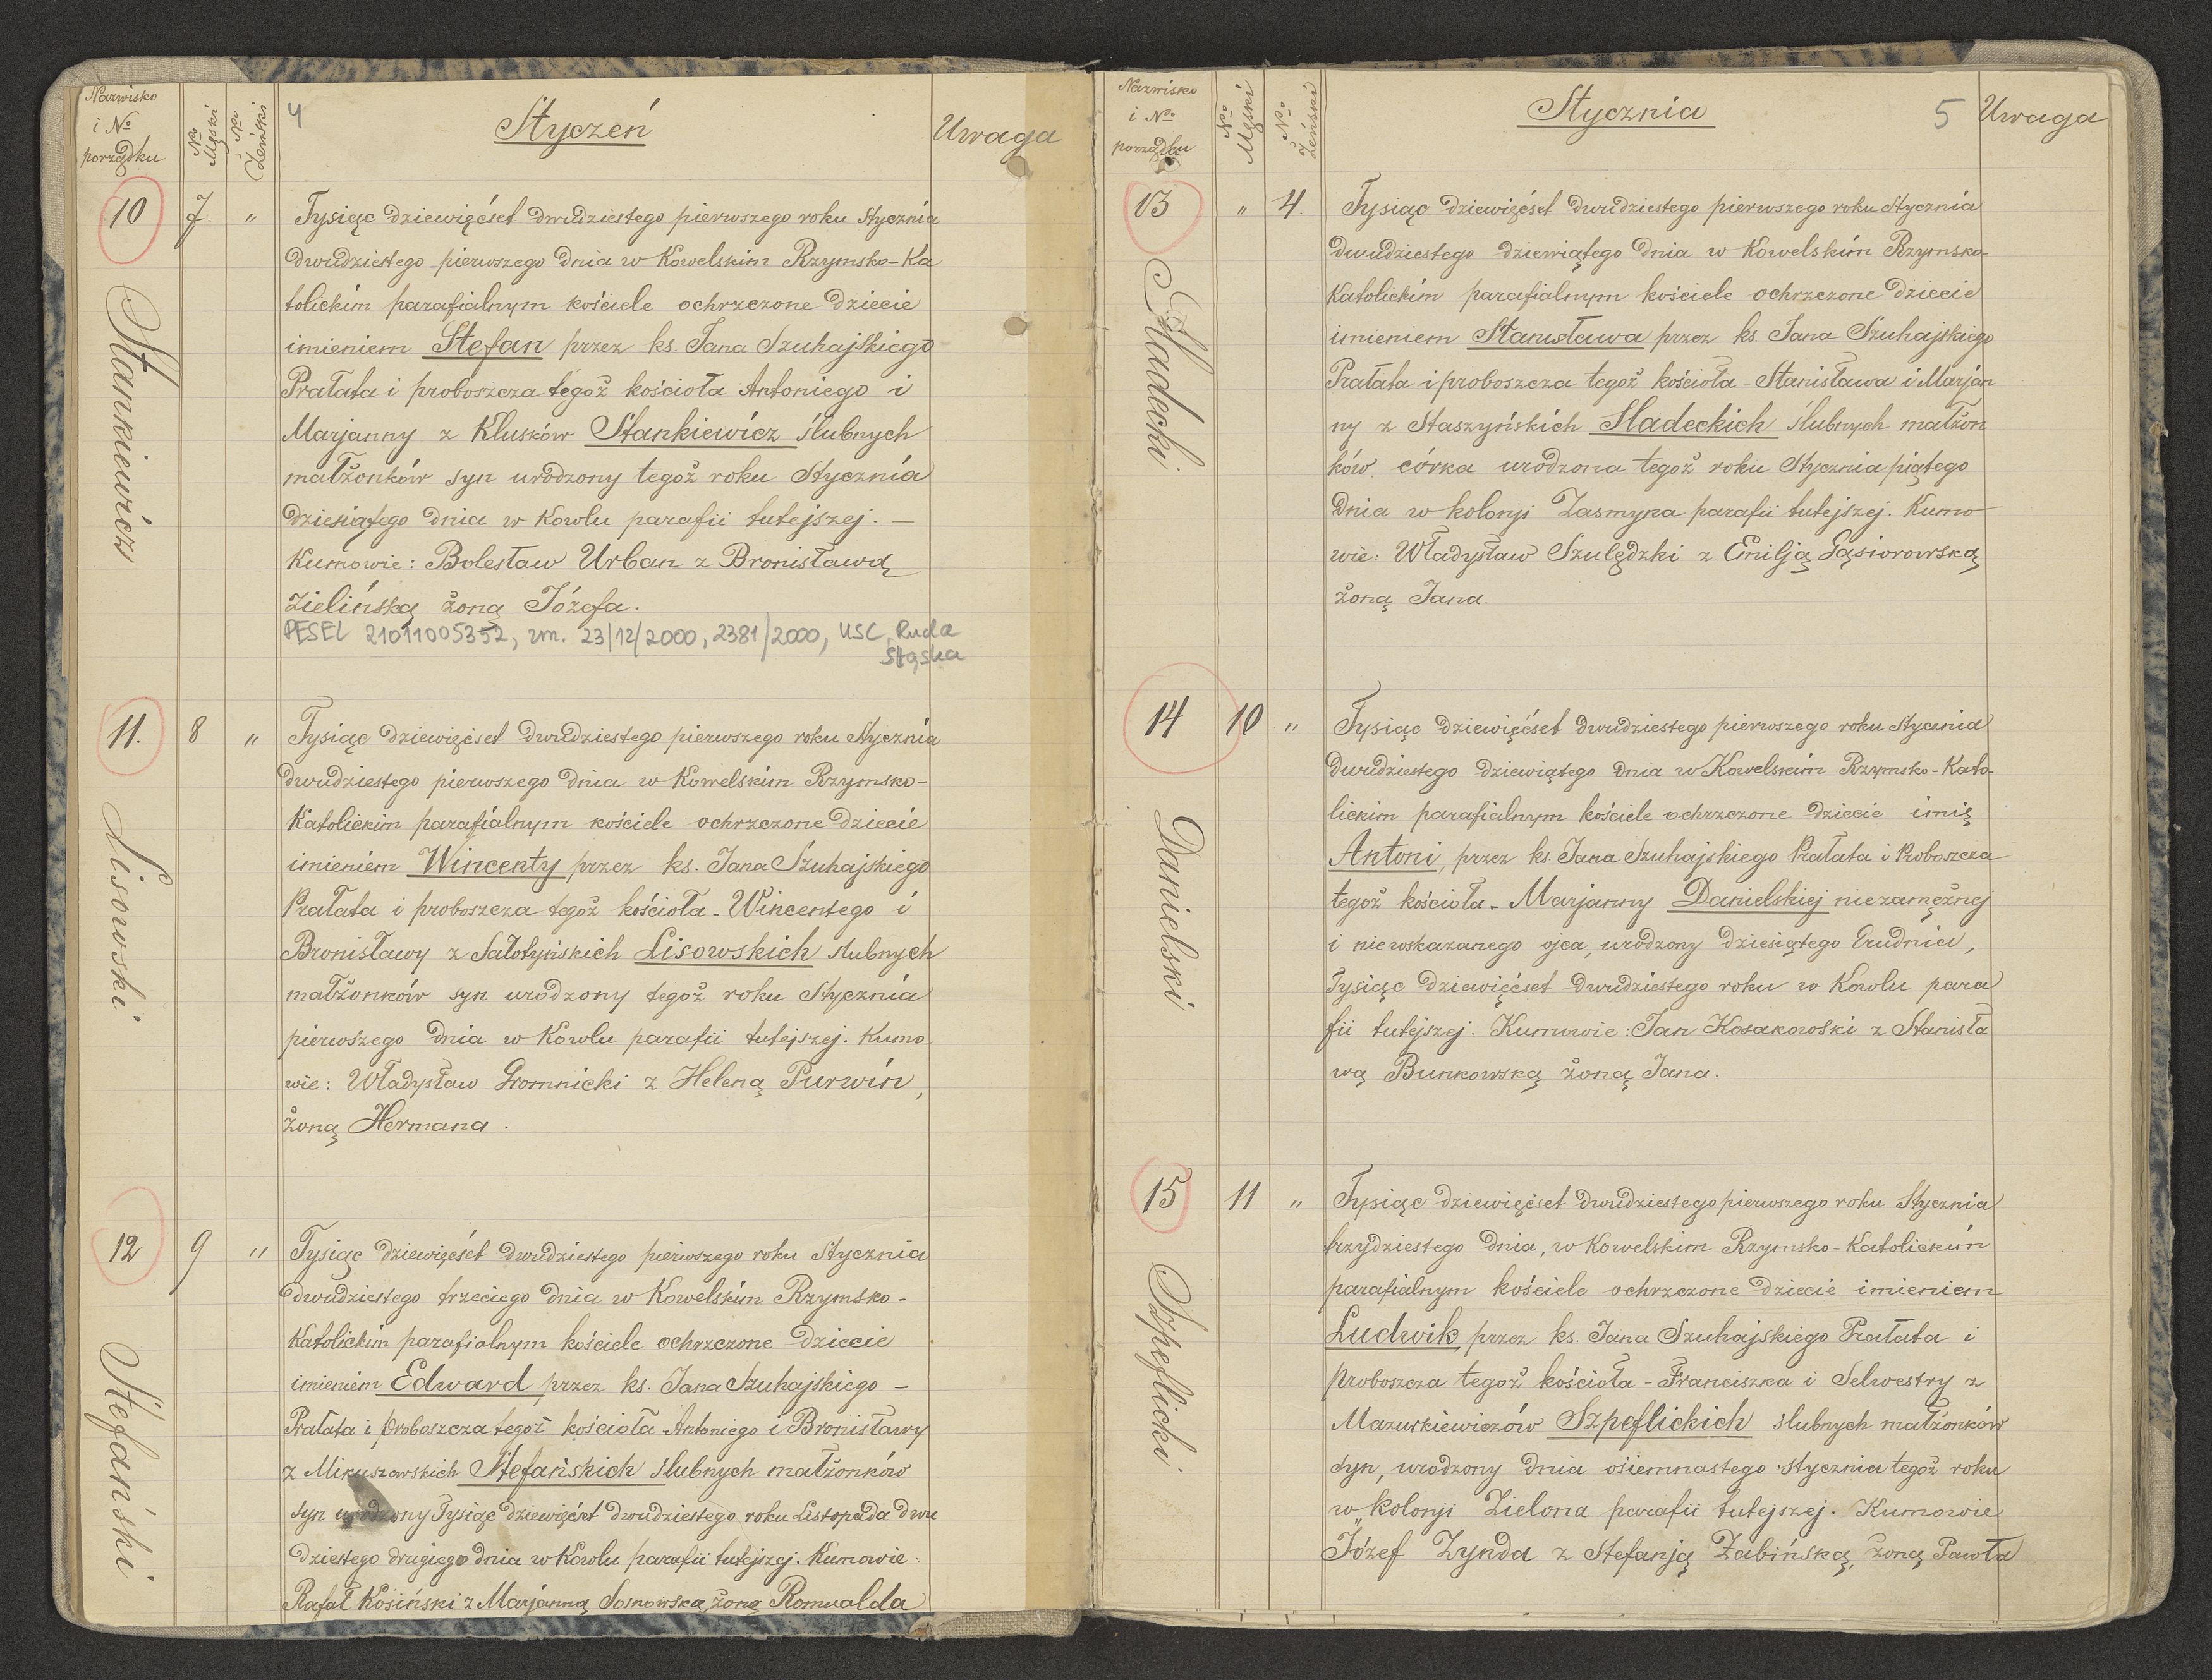 Nazwisko
i No
porządku
No Męski
No Żeński
4
Styczeń
Uwaga
10
7.
"
Stankiewicz
Tysiąc dziewięćset dwudziestego pierwszego roku Stycznia
dwudziestego pierwszego dnia w Kowelskim Rzymsko-Ka
tolickim parafialnym kościele ochrzczone dziecie
imieniem Stefan przez ks. Jana Szuhajskiego
Prałata i proboszcza tegoż kościoła Antoniego i
Marjanny z Klusków Stankiewicz ślubnych
małżonków syn urodzony tegoż roku Stycznia
dziesiątego dnia w Kowlu parafii tutejszej. —
Kumowie: Bolesław Urban z Bronisławą
Zielińską żoną Józefa.
PESEL 21011005352, zm. 23/12/2000, 2381/2000, USC Ruda
Śląska
11.
8
"
Lisowski
Tysiąc dziewięćset dwudziestego pierwszego roku Stycznia
dwudziestego pierwszego dnia w Kowelskim Rzymsko-
Katolickim parafialnym kościele ochrzczone dziecie
imieniem Wincenty przez ks. Jana Szuhajskiego
Prałata i proboszcza tegoż kościoła - Wincentego i
Bronisławy z Sałotyńskich Lisowskich ślubnych
małżonków syn urodzony tegoż roku Stycznia
pierwszego dnia w Kowlu parafii tutejszej. Kumo
wie: Władysław Gromnicki z Heleną Purwin,
żoną Hermana.
12
9
"
Stefański
Tysiąc dziewięćset dwudziestego pierwszego roku Stycznia
dwudziestego trzeciego dnia w Kowelskim Rzymsko-
Katolickim parafialnym kościele ochrzczone dziecie
imieniem Edward przez ks. Jana Szuhajskiego —
Prałata i proboszcza tegoż kościoła Antoniego i Bronisławy
z Mikuszewskich Stefańskich ślubnych małżonków
syn urodzony Tysiąc dziewięćset dwudziestego roku Listopada dwu
dziestego drugiego dnia w Kowlu parafii tutejszej. Kumowie:
Rafał Kosiński z Marjanną Sosnowską, żoną Romualda
Nazwisko
i No
porządku
No Męski
No Żeński
Stycznia
5
Uwaga
13
"
4.
Sladecki
Tysiąc dziewięćset dwudziestego pierwszego roku Stycznia
dwudziestego dziewiątego dnia w Kowelskim Rzymsko-
Katolickim parafialnym kościele ochrzczone dziecie
imieniem Stanisława przez ks. Jana Szuhajskiego
Prałata i proboszcza tegoż kościoła - Stanisława i Marjan
ny z Staszyńskich Sladeckich ślubnych małżon
ków córka urodzona tegoż roku Stycznia piątego
dnia w kolonji Zasmyka parafii tutejszej. Kumo
wie: Władysław Szulędzki z Emilją Gąsiorowską
żoną Jana.
14
10
"
Danielski
Tysiąc dziewięćset dwudziestego pierwszego roku Stycznia
dwudziestego dziewiątego dnia w Kowelskim Rzymsko-Kato-
lickim parafialnym kościele ochrzczone dziecie imię
Antoni, przez ks. Jana Szuhajskiego Prałata i Proboszcza
tegoż kościoła - Marjanny Danielskiej niezamężnej
i niewskazanego ojca, urodzony dziesiątego Grudnia,
Tysiąc dziewięćset dwudziestego roku w Kowlu para
fii tutejszej. Kumowie: Jan Kosakowski z Stanisła
wą Bunkowską żoną Jana.
15
11
"
Szpeflicki
Tysiąc dziewięćset dwudziestego pierwszego roku Stycznia
trzydziestego dnia, w Kowelskim Rzymsko-Katolickim
parafialnym kościele ochrzczone dziecie imieniem
Ludwik przez ks. Jana Szuhajskiego Prałata i
proboszcza tegoż kościoła - Franciszka i Selwestry z
Mazurkiewiczów Szpeflickich ślubnych małżonków
syn, urodzony dnia osiemnastego stycznia tegoż roku
w kolonji Zielona parafii tutejszej. Kumowie
Józef Zynda z Stefanją Żabińską, żoną Pawła